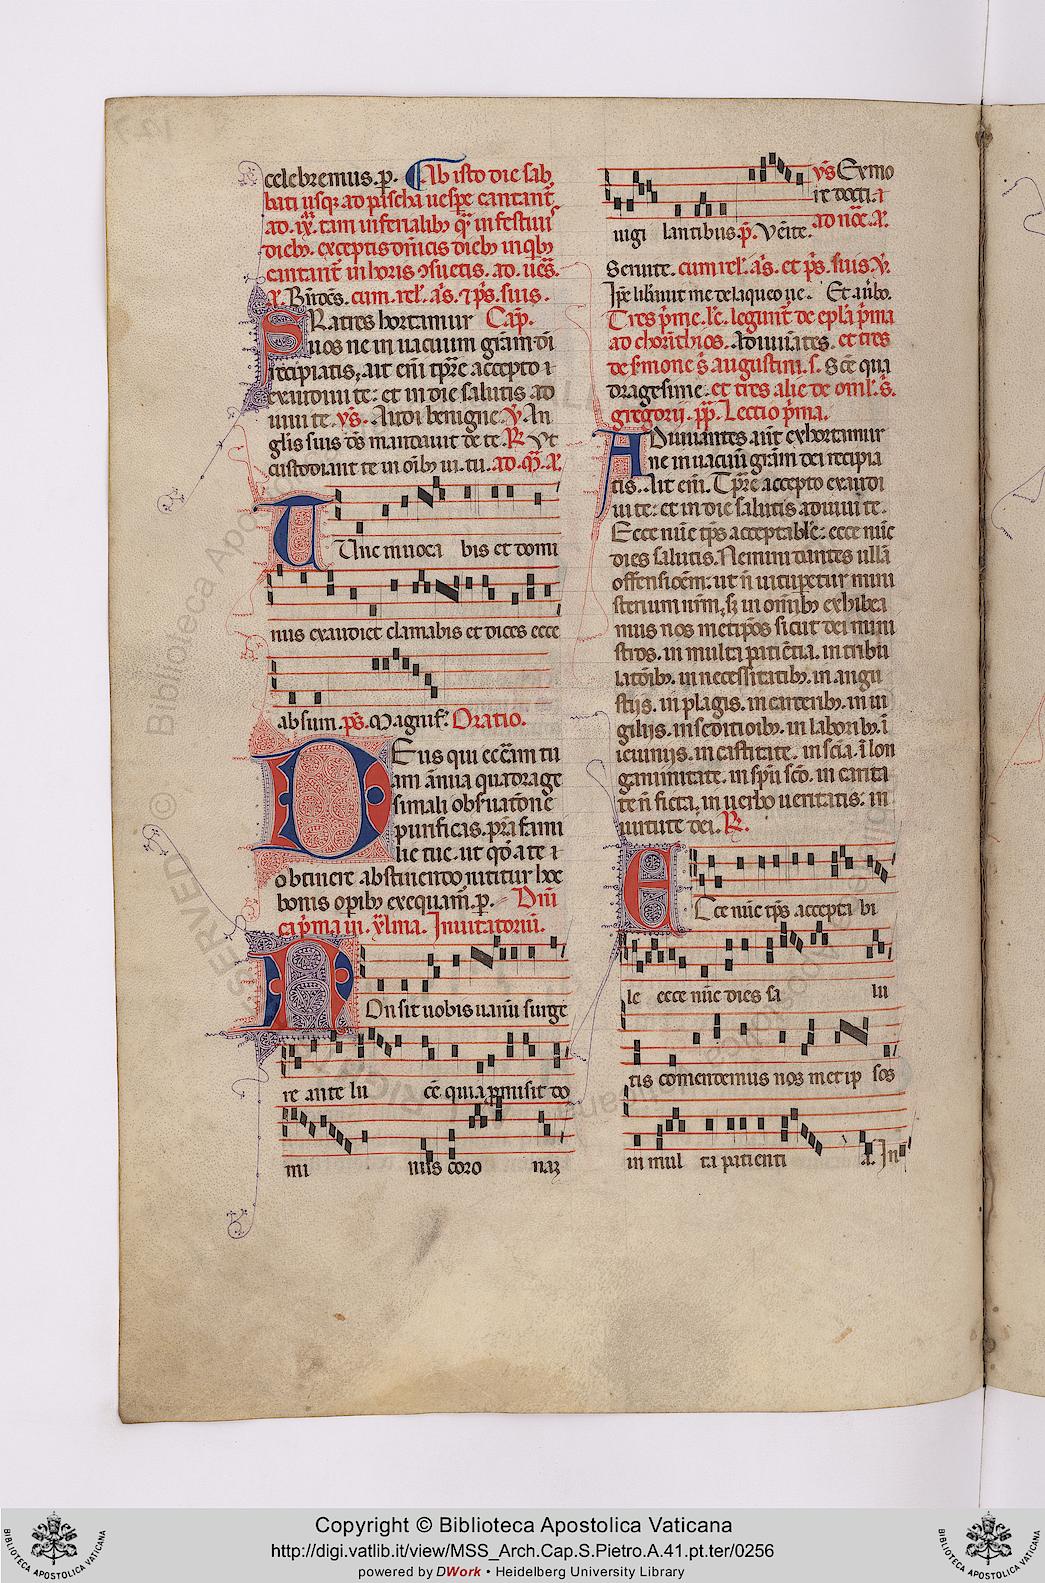 celebremus. p. Ab isto die sab
bati usq; ad pascha uespe cantant̄
ad. ix. tam in ferialib; q̄ in festiuis
dieb;. exceptis dn̄icis dieb; in qb;
cantant̄ in horis ɔsuetis. ad. ues̄.
cum. rel. a̅s. ⁊ p̄s. suis.
Fratres hortamur Cap̄.
uos ne in uacuum grām dī
recipiatis. ait eni tp̄re accepto ⁊
exaudiui te: et in die salutis ad
iuui te. v̄s. Audi benigne. v̄. An
glis suis ds̄ mandauit de te. R̄. Vt
custodiant te in oīb; ui. tu. ad. m̄. a̅.
Tunc inuoca bis et domi
nus exaudiet clamabis et dicet ecce
absum. ps̄. Magnif. Oratio.
Deus qui eccl̄iam tu
am annua quadrage
simali obseruatōne
purificas. pr̄a fami
lie tue. ut qd̄ a te ⁊
obtinere abstinendo nititur hoc
bonis opib; exequat̄. p. Dn̄i
ca p̄ma in. xl̄ma. Inuitatoriū.
Non sit uobis uanū surge
re ante lu cē quia p̄misit do
mi nus coro naz
uigi lantibus. p̄. Venite.
v̄s Ex mo
ad noc̄. a̅.
Seruite. cum rel. a̅s. et p̄s. suis. v̄.
Ip̄e liberauit me de laqueo ue. Et aūbo.
Tres p̄me. lc̄. legunt̄ de epl̄a p̄ma
ad chorinthios. Adiuuātes. et tres
de s̄mone s̄ augustini. s. Sc̄e qua
dragesime. et tres alie de omel. s̄.
gregorij. pp̄. Lectio p̄ma.
Adiuuantes aut exhortamur
ne in uacuū grām dei recipia
tis. Ait eni. Tp̄re accepto exaudi
ui te: et in die salutis adiuui te.
Ecce nūc tp̄s acceptabile: ecce nūc
dies salutis. Nemini dantes ullā
offensionē: ut n̄ uituperetur mini
sterium nrm̄, s; in omīb; exhibea
mus nos metip̄os sicut dei mini
stros. in multa patiētia. in tribu
latōib;. in necessitatib;. in angu
stijs. in plagis. in carcerib;. in ui
gilijs. in seditioib;. in laborib;. ī
ieiunijs. in castitate. in scīa. ī lon
ganimitate. in spū scō. in carita
te n̄ ficta. in uerbo ueritatis: in
uirtute dei. R̄.
Ecce nūc tp̄s accepta bi
le ecce nūc dies sa lu
tis comendemus nos metip sos
in mul ta patienti a. In
Copyright © Biblioteca Apostolica Vaticana
http://digi.vatlib.it/view/MSS_Arch.Cap.S.Pietro.A.41.pt.ter/0256
powered by DWork • Heidelberg University Library
BIBLIOTECA APOSTOLICA VATICANA
BIBLIOTECA APOSTOLICA VATICANA